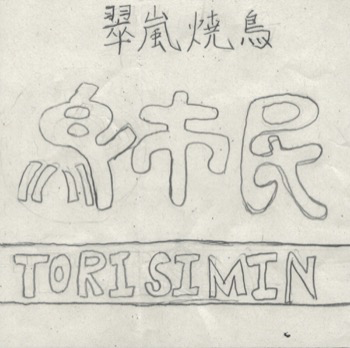 翠嵐焼鳥
鳥市民
TORISIMIN